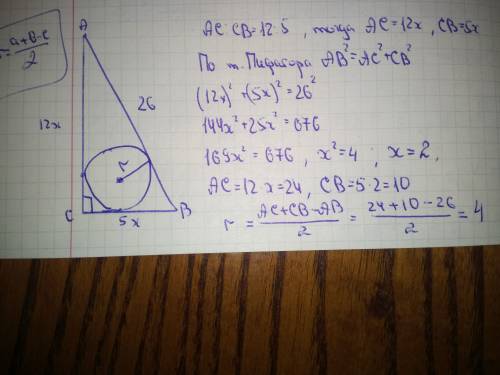 r=a+b-c/2
A
12x
26
r
C
5x
B
AC:CB=12:5, тогда AC=12x, CB=5x
По т. Пифагора AB²=AC²+CB²
(12x)²+(5x)²=26²
144x²+25x²=676
169x²=676, x²=4; x=2,
AC=12·x=24, CB=5·2=10
r=AC+CB-AB/2=24+10-26/2=4